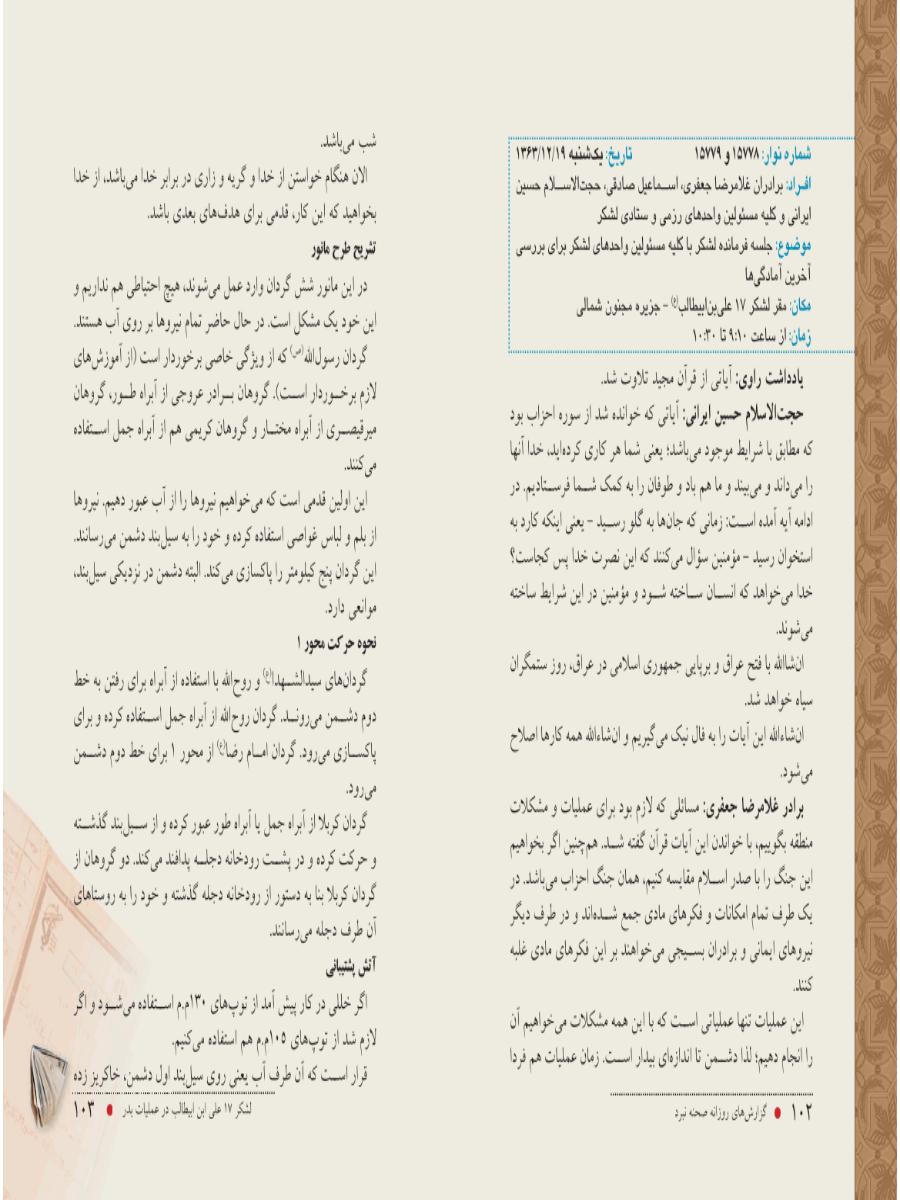 شماره نوار: ۱۵۷۷۸ و ۱۵۷۷۹ تاریخ: یک‌شنبه ۱۳۶۳/۱۲/۱۹
افراد: برادران غلامرضا جعفری، اسماعیل صادقی، حجت‌الاسلام حسین
ایرانی و کلیه مسئولین واحدهای رزمی و ستادی لشکر
موضوع: جلسه فرمانده لشکر با کلیه مسئولین واحدهای لشکر برای بررسی
آخرین آمادگی‌ها
مکان: مقر لشکر ۱۷ علی‌بن‌ابیطالب(ع) - جزیره مجنون شمالی
زمان: از ساعت ۹:۱۰ تا ۱۰:۳۰
یادداشت راوی: آیاتی از قرآن مجید تلاوت شد.
حجت‌الاسلام حسین ایرانی: آیاتی که خوانده شد از سوره احزاب بود
که مطابق با شرایط موجود می‌باشد؛ یعنی شما هر کاری کرده‌اید، خدا آنها
را می‌داند و می‌بیند و ما هم باد و طوفان را به کمک شما فرستادیم. در
ادامه آیه آمده است: زمانی که جان‌ها به گلو رسید - یعنی اینکه کارد به
استخوان رسید - مؤمنین سؤال می‌کنند که این نصرت خدا پس کجاست؟
خدا می‌خواهد که انسان ساخته شود و مؤمنین در این شرایط ساخته
می‌شوند.
ان‌شاالله با فتح عراق و برپایی جمهوری اسلامی در عراق، روز ستمگران
سیاه خواهد شد.
ان‌شاءالله این آیات را به فال نیک می‌گیریم و ان‌شاءالله همه کارها اصلاح
می‌شود.
برادر غلامرضا جعفری: مسائلی که لازم بود برای عملیات و مشکلات
منطقه بگوییم، با خواندن این آیات قرآن گفته شد. هم‌چنین اگر بخواهیم
این جنگ را با صدر اسلام مقایسه کنیم، همان جنگ احزاب می‌باشد. در
یک طرف تمام امکانات و فکرهای مادی جمع شده‌اند و در طرف دیگر
نیروهای ایمانی و برادران بسیجی می‌خواهند بر این فکرهای مادی غلبه
کنند.
این عملیات تنها عملیاتی است که با این همه مشکلات می‌خواهیم آن
را انجام دهیم؛ لذا دشمن تا اندازه‌ای بیدار است. زمان عملیات هم فردا
۱۰۲ • گزارش‌های روزانه صحنه نبرد
شب می‌باشد.
الان هنگام خواستن از خدا و گریه و زاری در برابر خدا می‌باشد، از خدا
بخواهید که این کار، قدمی برای هدف‌های بعدی باشد.
تشریح طرح مانور
در این مانور شش گردان وارد عمل می‌شوند، هیچ احتیاطی هم نداریم و
این خود یک مشکل است. در حال حاضر تمام نیروها بر روی آب هستند.
گردان رسول‌الله(ص) که از ویژگی خاصی برخوردار است (از آموزش‌های
لازم برخوردار است). گروهان برادر عروجی از آبراه طور، گروهان
میرقیصری از آبراه مختار و گروهان کریمی هم از آبراه جمل استفاده
می‌کنند.
این اولین قدمی است که می‌خواهیم نیروها را از آب عبور دهیم. نیروها
از بلم و لباس غواصی استفاده کرده و خود را به سیل‌بند دشمن می‌رسانند.
این گردان پنج کیلومتر را پاکسازی می‌کند. البته دشمن در نزدیکی سیل‌بند،
موانعی دارد.
نحوه حرکت محور ۱
گردان‌های سیدالشهدا(ع) و روح‌الله با استفاده از آبراه برای رفتن به خط
دوم دشمن می‌روند. گردان روح‌الله از آبراه جمل استفاده کرده و برای
پاکسازی می‌رود. گردان امام رضا(ع) از محور ۱ برای خط دوم دشمن
می‌رود.
گردان کربلا از آبراه جمل یا آبراه طور عبور کرده و از سیل‌بند گذشته
و حرکت کرده و در پشت رودخانه دجله پدافند می‌کند. دو گروهان از
گردان کربلا بنا به دستور از رودخانه دجله گذشته و خود را به روستاهای
آن طرف دجله می‌رسانند.
آتش پشتیبانی
اگر خللی در کار پیش آمد از توپ‌های ۱۳۰م.م استفاده می‌شود و اگر
لازم شد از توپ‌های ۱۰۵م.م هم استفاده می‌کنیم.
قرار است که آن طرف آب یعنی روی سیل‌بند اول دشمن، خاکریز زده
لشکر ۱۷ علی ابن ابیطالب در عملیات بدر • ۱۰۳